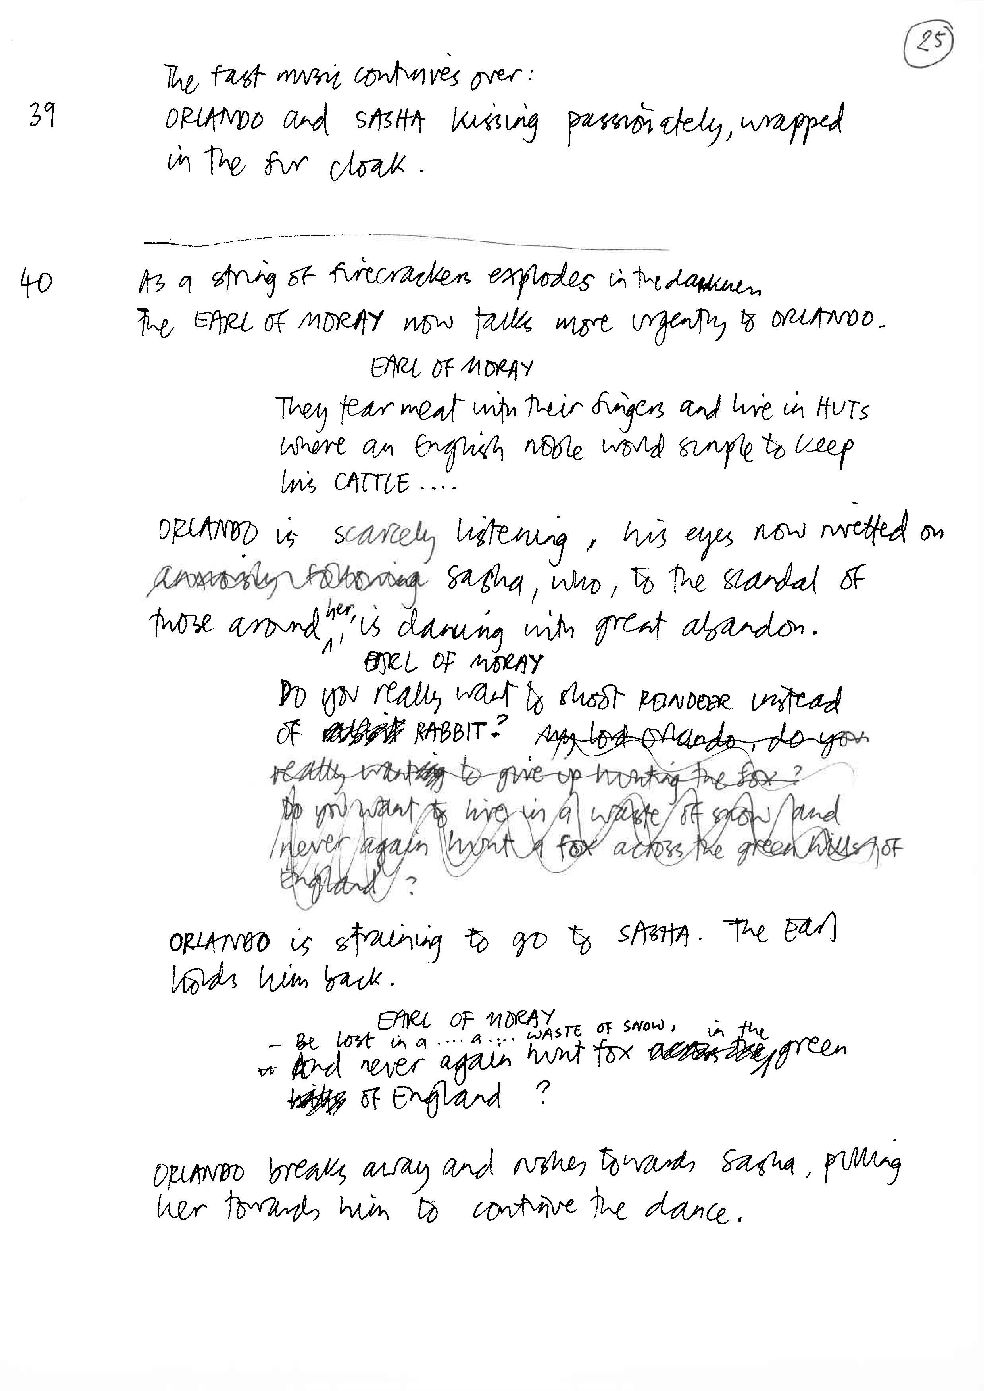 25
The fast music continues over:
39
ORLANDO and SASHA kissing passionately, wrapped
in the fur cloak.
40
As a string of firecrackers explodes in the darkness
The EARL OF MORAY now talks more urgently to ORLANDO.
EARL OF MORAY
They tear meat with their fingers and live in HUTS
where an English noble would scruple to keep
his CATTLE ....
ORLANDO is scarcely listening, his eyes now rivetted on
anxiously following Sasha, who, to the scandal of
those around her, is dancing with great abandon.
EARL OF MORAY
Do you really want to shoot REINDEER instead
of RABBIT? My lord Orlando, do you
really want to give up hunting the fox?
Do you want to live in a waste of snow and
never again hunt a fox across the green hills of
England?
ORLANDO is straining to go to SASHA. The Earl
holds him back.
EARL OF MORAY
- Be lost in a .... a .... WASTE OF SNOW, in the
And never again hunt fox across the green
hills of England ?
ORLANDO breaks away and rushes towards Sasha, pulling
her towards him to continue the dance.